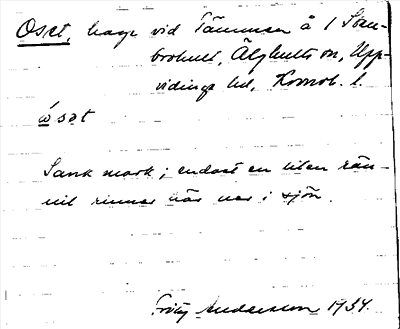 Oset, hage vid Tämmen å i Sten-
brohult, Älghults sn, Upp-
vidinge hd, Kronob. l.
ò́set
Sank mark; endast en liten rän-
nil rinner här ner i sjön.
Fritz Andersson 1934.